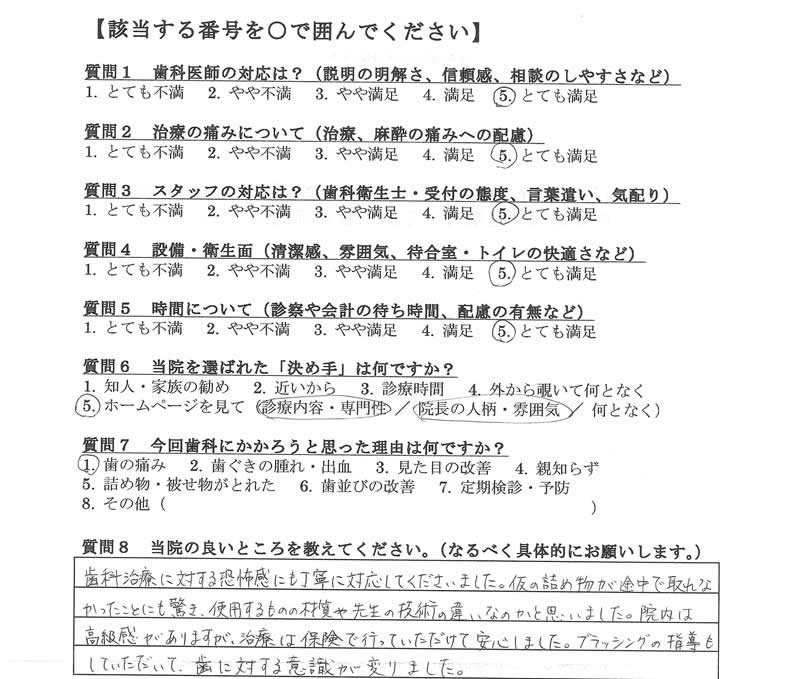 【該当する番号を○で囲んでください】
質問1 歯科医師の対応は?(説明の明解さ、信頼感、相談のしやすさなど)
1. とても不満 2. やや不満 3. やや満足 4. 満足 5. とても満足
質問2 治療の痛みについて(治療、麻酔の痛みへの配慮)
1. とても不満 2. やや不満 3. やや満足 4. 満足 5. とても満足
質問3 スタッフの対応は?(歯科衛生士・受付の態度、言葉遣い、気配り)
1. とても不満 2. やや不満 3. やや満足 4. 満足 5. とても満足
質問4 設備・衛生面(清潔感、雰囲気、待合室・トイレの快適さなど)
1. とても不満 2. やや不満 3. やや満足 4. 満足 5. とても満足
質問5 時間について(診察や会計の待ち時間、配慮の有無など)
1. とても不満 2. やや不満 3. やや満足 4. 満足 5. とても満足
質問6 当院を選ばれた「決め手」は何ですか?
1. 知人・家族の勧め 2. 近いから 3. 診療時間 4. 外から覗いて何となく
5. ホームページを見て(診療内容・専門性/院長の人柄・雰囲気/何となく)
質問7 今回歯科にかかろうと思った理由は何ですか?
1. 歯の痛み 2. 歯ぐきの腫れ・出血 3. 見た目の改善 4. 親知らず
5. 詰め物・被せ物がとれた 6. 歯並びの改善 7. 定期検診・予防
8. その他( )
質問8 当院の良いところを教えてください。(なるべく具体的にお願いします。)
歯科治療に対する恐怖感にも丁寧に対応してくださいました。仮の詰め物が途中で取れな
かったことにも驚き、使用するものの材質や先生の技術の違いなのかと思いました。院内は
高級感がありますが、治療は保険で行っていただけて安心しました。ブラッシングの指導も
していただいて、歯に対する意識が変りました。